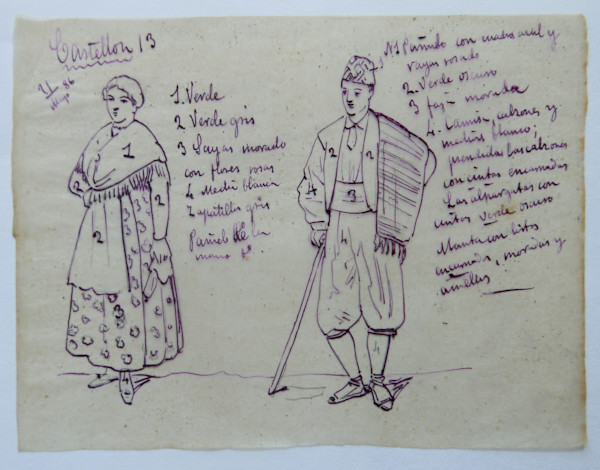 Castellon 13
21
Mayo 86
1. Verde
2 Verde gris
3 Sayas morado
con flores rosas
4 Media blanca
Zapatillas gris
Pañuelo de la
mano
Nº1 Pañuelo con cuadros azul y
rayas rosado
2. Verde oscuro
3 faja morada
4. Camisa, calzones y
medias blanco;
prendidas los calzones
con cintas encarnadas
Las alpargatas con
cintas verde oscuro
Manta con listas
encarnadas, moradas y
amarillas
1
2
2
2
3
4
2
2
4
3
4
4